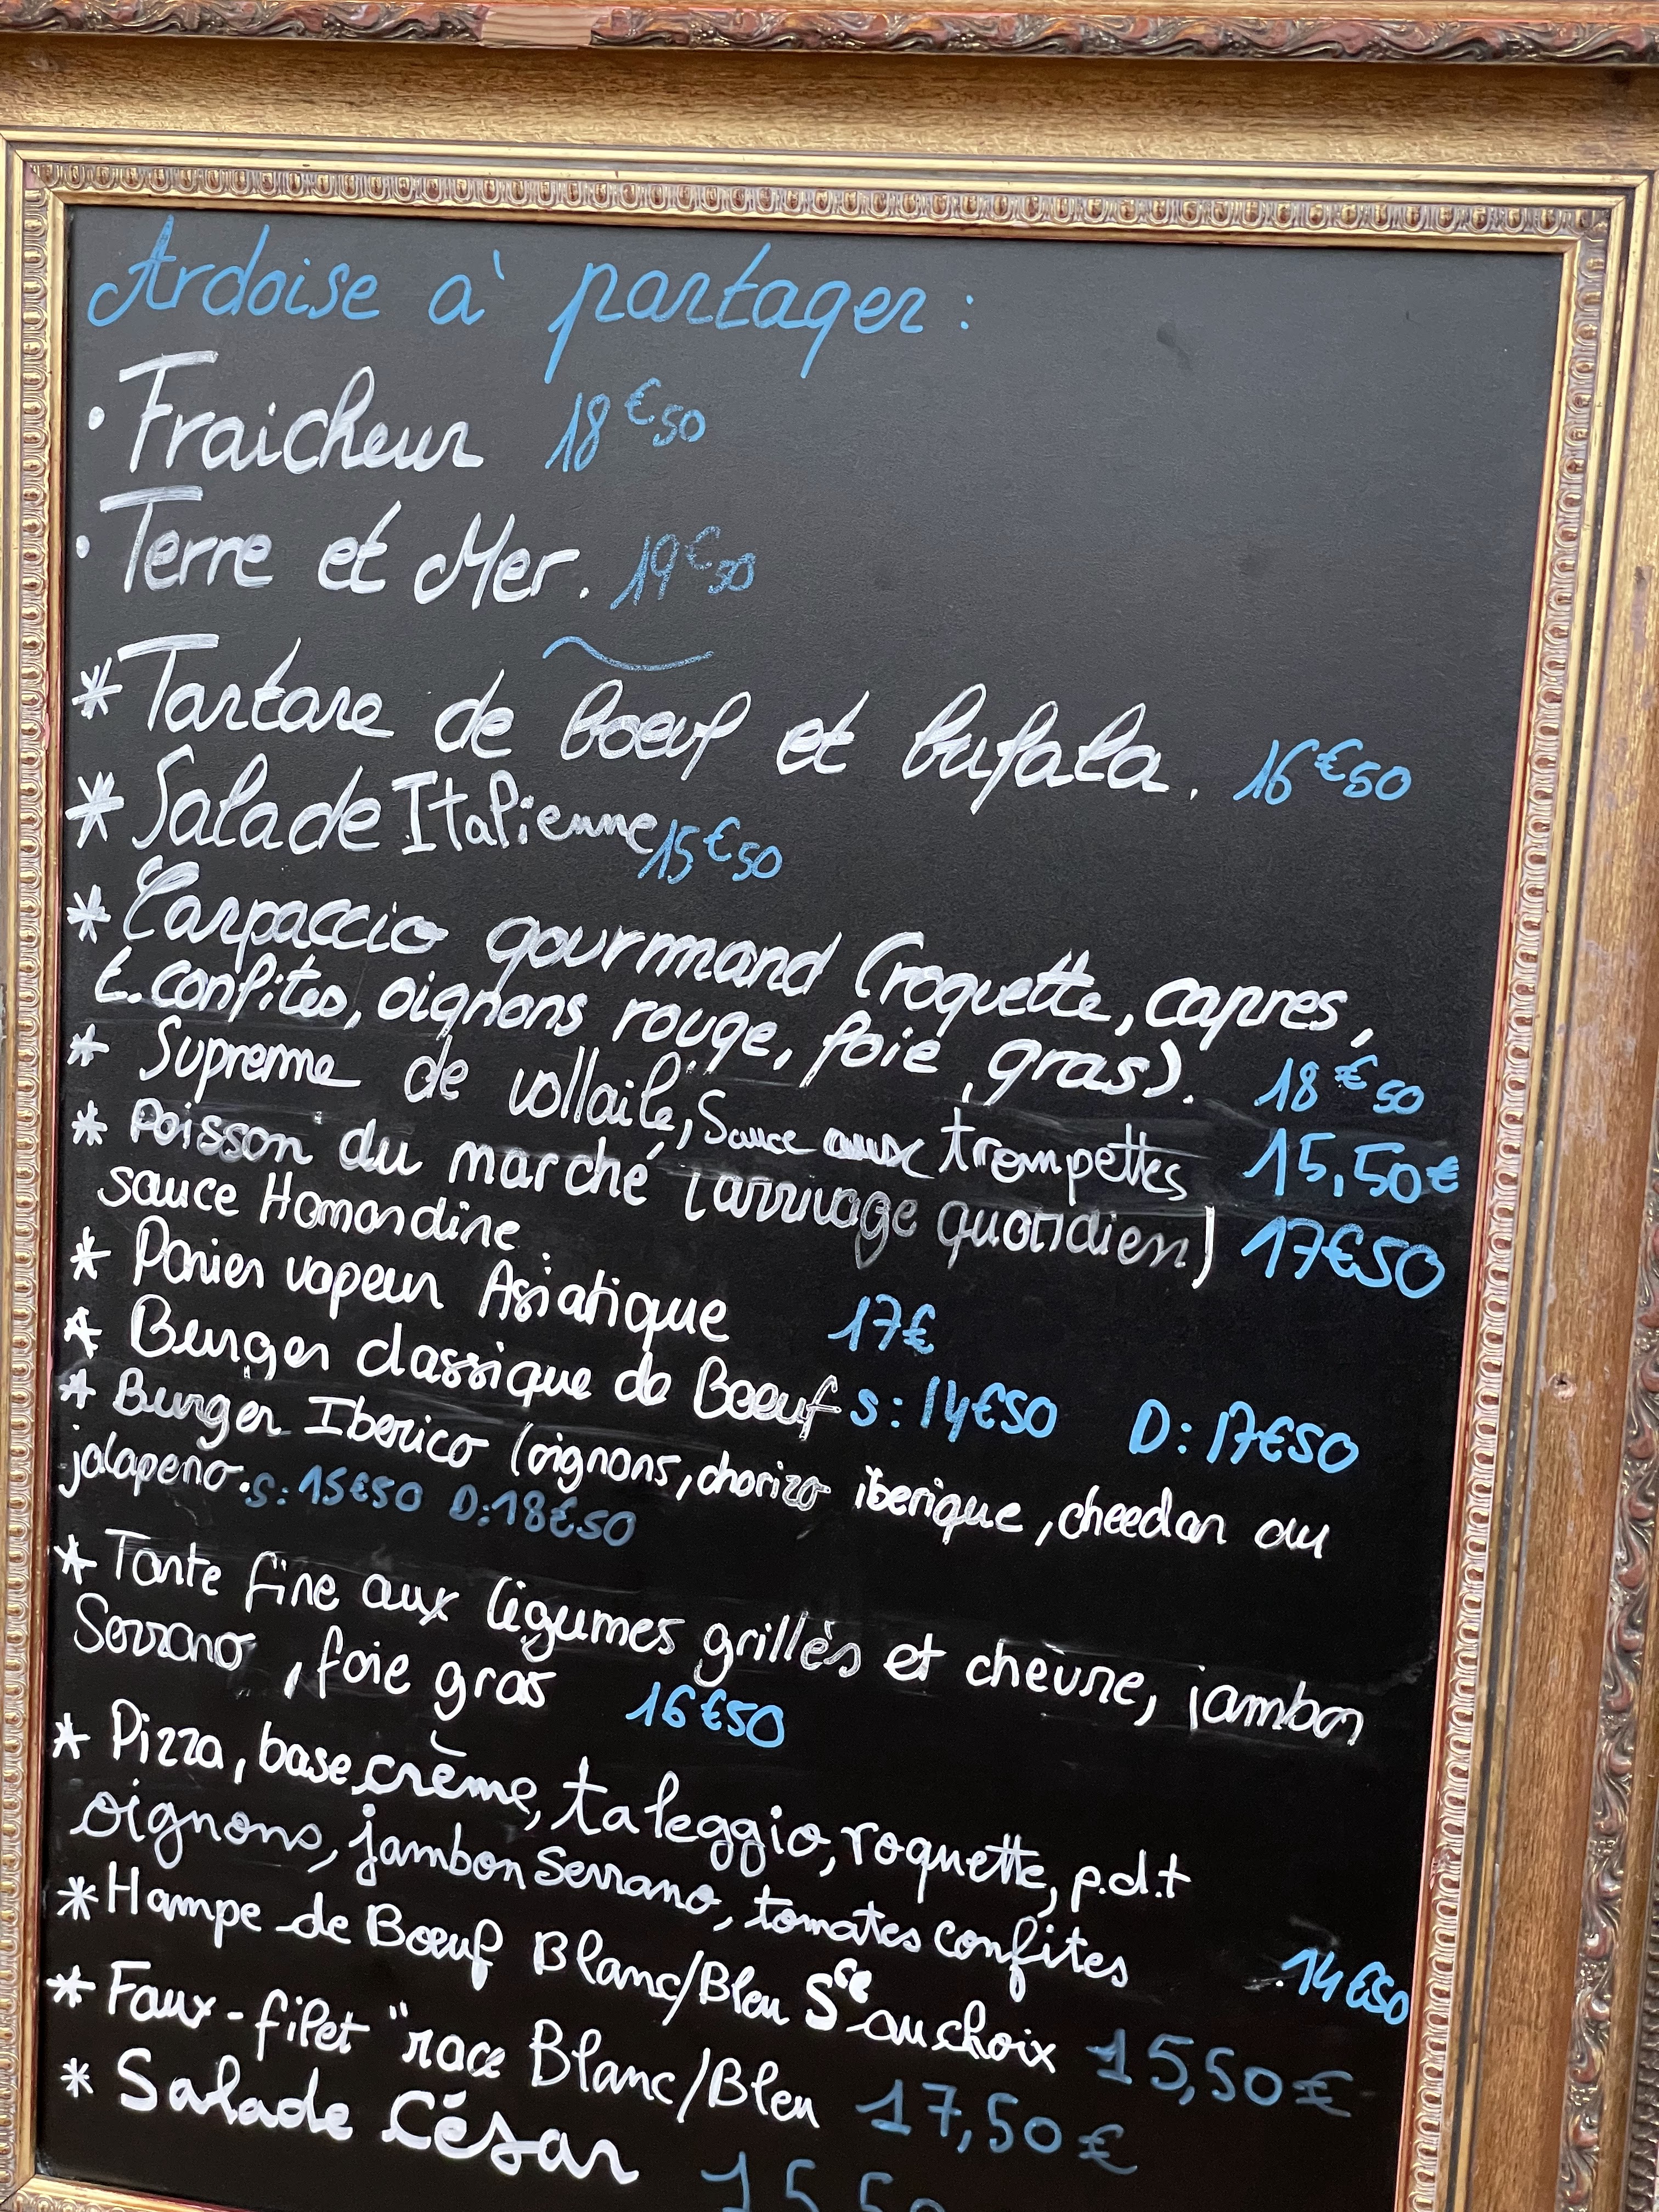 Ardoise à partager :
• Fraicheur 18€50
• Terre et Mer. 19€50
* Tartare de boeuf et bufala. 16€50
* Salade Italienne 15€50
* Carpaccio gourmand (roquette, capres,
t. confites, oignons rouge, foie gras). 18€50
* Supreme de vollaile, Sauce aux trompettes 15,50€
* Poisson du marché (arrivage quotidien) 17€50
sauce Homardine
* Panier vapeur Asiatique 17€
* Burger classique de Boeuf S: 14€50 D: 17€50
* Burger Iberico (oignons, chorizo iberique, cheedar ou
jalapeno. S: 15€50 D: 18€50
* Tarte fine aux légumes grillès et chèvre, jambon
Serrano, foie gras 16€50
* Pizza, base crème, taleggio, roquette, p.d.t
oignons, jambon Serrano, tomates confites 14€50
* Hampe de Bœuf Blanc/Bleu Sce au choix 15,50€
* Faux-filet "race Blanc/Bleu 17,50€
* Salade César 15,50